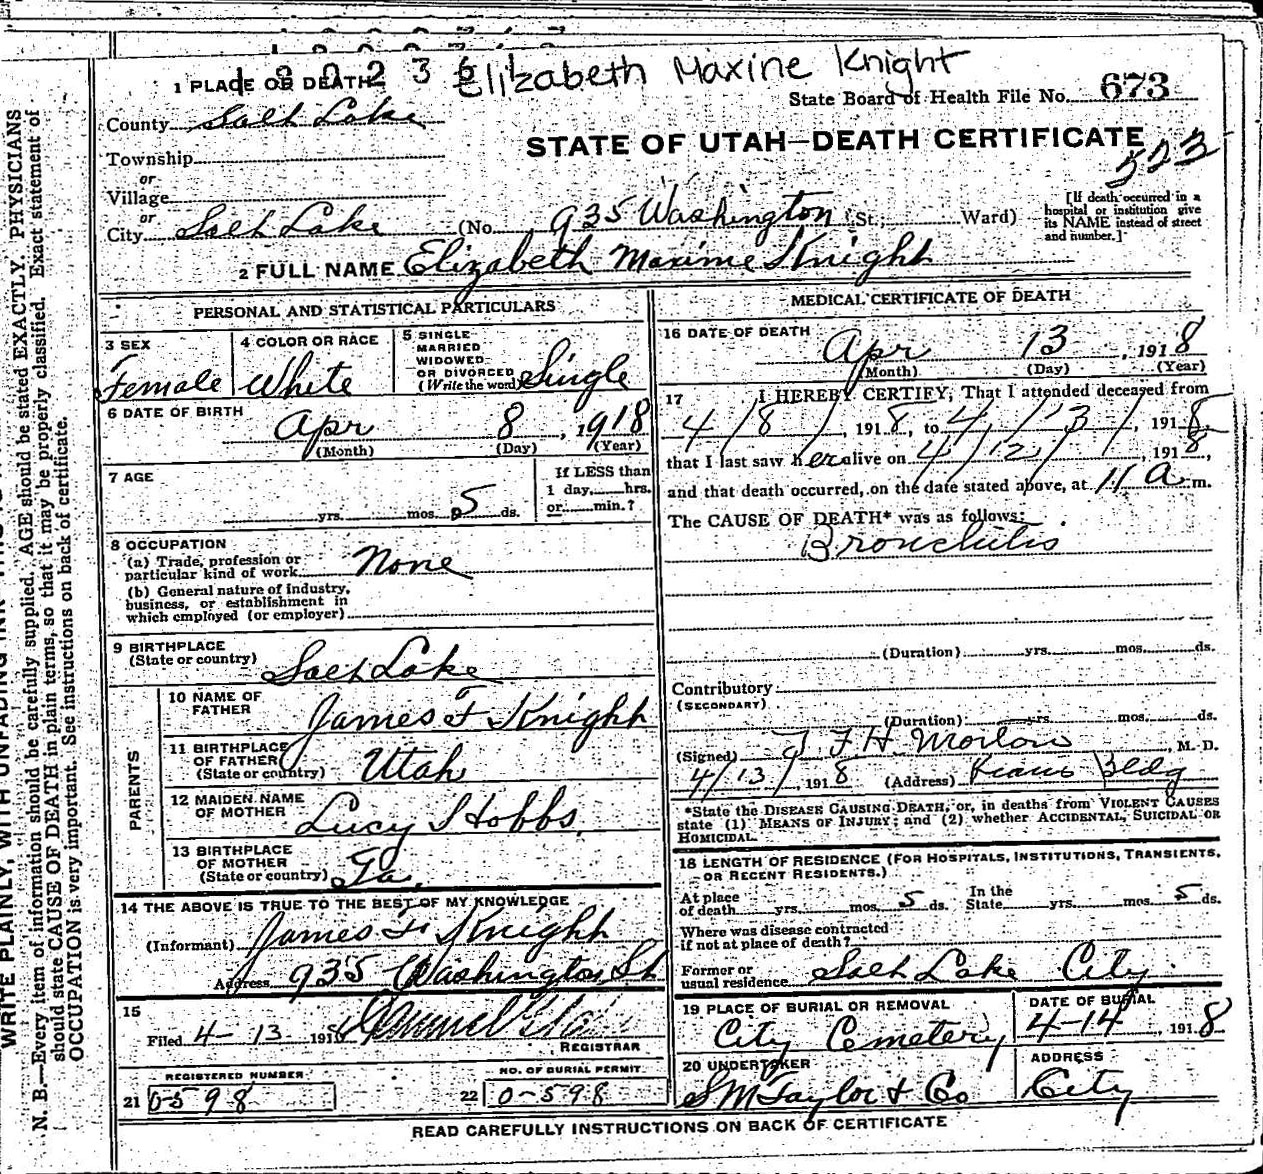 Elizabeth Maxine Knight
1 PLACE OF DEATH
State Board of Health File No. 673
County Salt Lake
STATE OF UTAH—DEATH CERTIFICATE
523
Township
or
Village
or
City Salt Lake (No. 935 Washington St.; Ward)
[If death occurred in a
hospital or institution give
its NAME instead of street
and number.]
2 FULL NAME Elizabeth Maxime Knight
PERSONAL AND STATISTICAL PARTICULARS
3 SEX
Female
4 COLOR OR RACE
White
5 SINGLE
MARRIED
WIDOWED
OR DIVORCED
(Write the word) Single
6 DATE OF BIRTH
Apr 8, 1918
(Month) (Day) (Year)
7 AGE
yrs. mos. 5 ds.
If LESS than
1 day, hrs.
or min.?
8 OCCUPATION
(a) Trade, profession or
particular kind of work None
(b) General nature of industry,
business, or establishment in
which employed (or employer)
9 BIRTHPLACE
(State or country) Salt Lake
PARENTS
10 NAME OF
FATHER James F Knight
11 BIRTHPLACE
OF FATHER
(State or country) Utah
12 MAIDEN NAME
OF MOTHER Lucy Hobbs
13 BIRTHPLACE
OF MOTHER
(State or country)
14 THE ABOVE IS TRUE TO THE BEST OF MY KNOWLEDGE
(Informant) James F. Knight
Address 935 Washington St
15
Filed 4-13 1918
REGISTRAR
REGISTERED NUMBER
21 0-598
NO. OF BURIAL PERMIT
22 0-598
MEDICAL CERTIFICATE OF DEATH
16 DATE OF DEATH
Apr 13, 1918
(Month) (Day) (Year)
17 I HEREBY CERTIFY, That I attended deceased from
4/8/, 1918, to 4/13/, 1918
that I last saw her alive on 4/12/, 1918,
and that death occurred, on the date stated above, at 11 a m.
The CAUSE OF DEATH* was as follows:
Bronchitis
(Duration) yrs. mos. ds.
Contributory
(SECONDARY)
(Duration) yrs. mos. ds.
(Signed) F H, M. D.
4/13/, 1918 (Address) Bldg
*State the DISEASE CAUSING DEATH, or, in deaths from VIOLENT CAUSES
state (1) MEANS OF INJURY; and (2) whether ACCIDENTAL, SUICIDAL OR
HOMICIDAL.
18 LENGTH OF RESIDENCE (FOR HOSPITALS, INSTITUTIONS, TRANSIENTS,
OR RECENT RESIDENTS.)
At place
of death yrs. mos. 5 ds.
In the
State yrs. mos. 5 ds.
Where was disease contracted
if not at place of death?
Former or
usual residence Salt Lake City
19 PLACE OF BURIAL OR REMOVAL
City Cemetery
DATE OF BURIAL
4-14, 1918
20 UNDERTAKER
S M Taylor & Co
ADDRESS
City
READ CAREFULLY INSTRUCTIONS ON BACK OF CERTIFICATE
WRITE PLAINLY, WITH UNFADING INK
N. B.—Every item of information should be carefully supplied. AGE should be stated EXACTLY. PHYSICIANS
should state CAUSE OF DEATH in plain terms, so that it may be properly classified. Exact statement of
OCCUPATION is very important. See instructions on back of certificate.